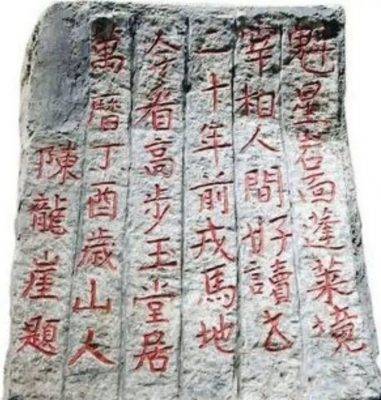 魁星岩面蓬萊境
宰相人間好讀书
二十年前戎馬地
今看高步玉堂居
萬曆丁酉歲山人
陳龍崖題